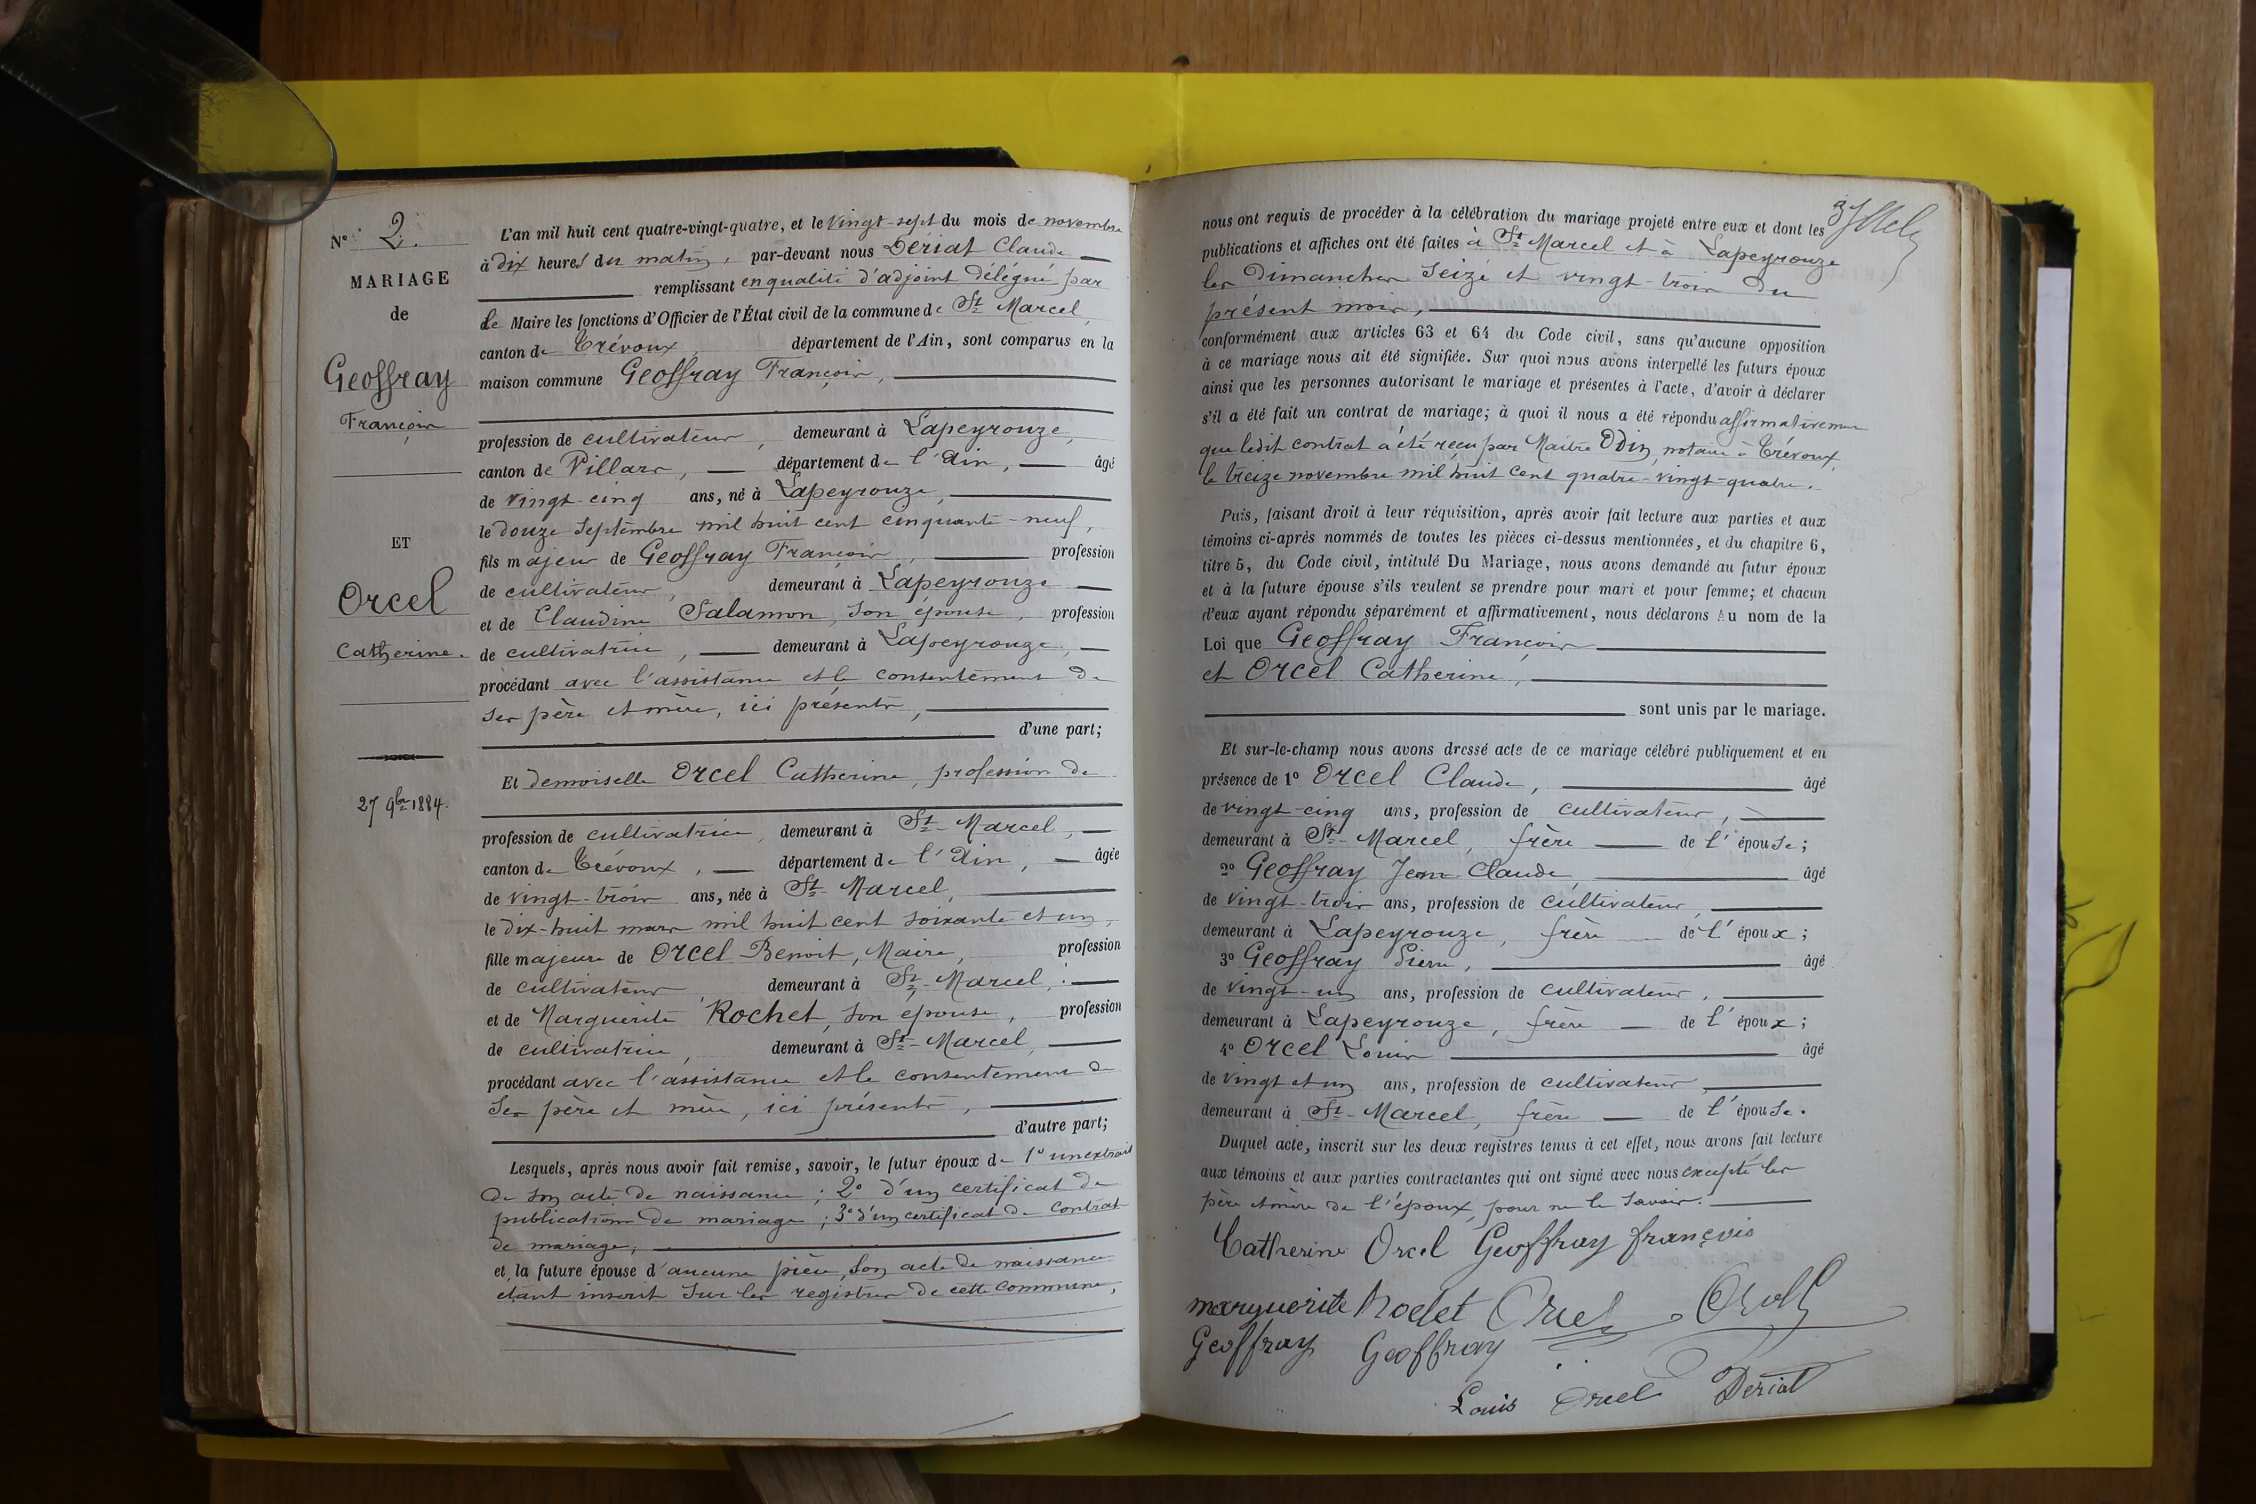 N° 2.
MARIAGE
de
Geoffray
François
ET
Orcel
Catherine.
27 9bre 1884.
L'an mil huit cent quatre-vingt-quatre, et le vingt-sept du mois de novembre
à dix heures du matin, par-devant nous Dériat Claude
remplissant en qualité d'adjoint délégué par
le Maire les fonctions d'Officier de l'État civil de la commune de St Marcel,
canton de Trévoux, département de l'Ain, sont comparus en la
maison commune Geoffray François,
profession de cultivateur, demeurant à Lapeyrouze,
canton de Villars, département de l'Ain, âgé
de vingt-cinq ans, né à Lapeyrouze,
le douze Septembre mil huit cent cinquante-neuf,
fils majeur de Geoffray François, profession
de cultivateur, demeurant à Lapeyrouze
et de Claudine Salamon, son épouse, profession
de cultivatrice, demeurant à Lapeyrouze,
procédant avec l'assistance et le consentement de
ses père et mère, ici présents,
d'une part;
Et demoiselle Orcel Catherine, profession de
profession de cultivatrice, demeurant à St-Marcel,
canton de Trévoux, département de l'Ain, âgée
de vingt-trois ans, née à St-Marcel,
le dix-huit mars mil huit cent soixante et un,
fille majeure de Orcel Benoit, Maire, profession
de cultivateur, demeurant à St-Marcel,
et de Marguerite Rochet, son épouse, profession
de cultivatrice, demeurant à St-Marcel,
procédant avec l'assistance et le consentement de
ses père et mère, ici présents,
d'autre part;
Lesquels, après nous avoir fait remise, savoir, le futur époux de 1° un extrait
de son acte de naissance; 2° d'un certificat de
publications de mariage; 3° d'un certificat de contrat
de mariage,
et, la future épouse d'aucune pièce, son acte de naissance
étant inscrit sur les registres de cette commune,
nous ont requis de procéder à la célébration du mariage projeté entre eux et dont les
publications et affiches ont été faites à St Marcel et à Lapeyrouze
les dimanches seize et vingt-trois du
présent mois,
conformément aux articles 63 et 64 du Code civil, sans qu'aucune opposition
à ce mariage nous ait été signifiée. Sur quoi nous avons interpellé les futurs époux
ainsi que les personnes autorisant le mariage et présentes à l'acte, d'avoir à déclarer
s'il a été fait un contrat de mariage; à quoi il nous a été répondu affirmativement
que ledit contrat a été reçu par Maitre Odin, notaire à Trévoux,
le treize novembre mil huit cent quatre-vingt-quatre.
Puis, faisant droit à leur réquisition, après avoir fait lecture aux parties et aux
témoins ci-après nommés de toutes les pièces ci-dessus mentionnées, et du chapitre 6,
titre 5, du Code civil, intitulé Du Mariage, nous avons demandé au futur époux
et à la future épouse s'ils veulent se prendre pour mari et pour femme; et chacun
d'eux ayant répondu séparément et affirmativement, nous déclarons Au nom de la
Loi que Geoffray François
et Orcel Catherine,
sont unis par le mariage.
Et sur-le-champ nous avons dressé acte de ce mariage célébré publiquement et en
présence de 1° Orcel Claude, âgé
de vingt-cinq ans, profession de cultivateur,
demeurant à St-Marcel, frère de l'épouse;
2° Geoffray Jean Claude, âgé
de vingt-trois ans, profession de cultivateur,
demeurant à Lapeyrouze, frère de l'époux;
3° Geoffray Pierre, âgé
de vingt-un ans, profession de cultivateur,
demeurant à Lapeyrouze, frère de l'époux;
4° Orcel Louis âgé
de vingt et un ans, profession de cultivateur,
demeurant à St-Marcel, frère de l'épouse.
Duquel acte, inscrit sur les deux registres tenus à cet effet, nous avons fait lecture
aux témoins et aux parties contractantes qui ont signé avec nous excepté les
père et mère de l'époux, pour ne le savoir.
Catherine Orcel Geoffray françois
marguerite Rochet Orcel Orcel
Geoffray Geoffray
Louis Orcel Deriat